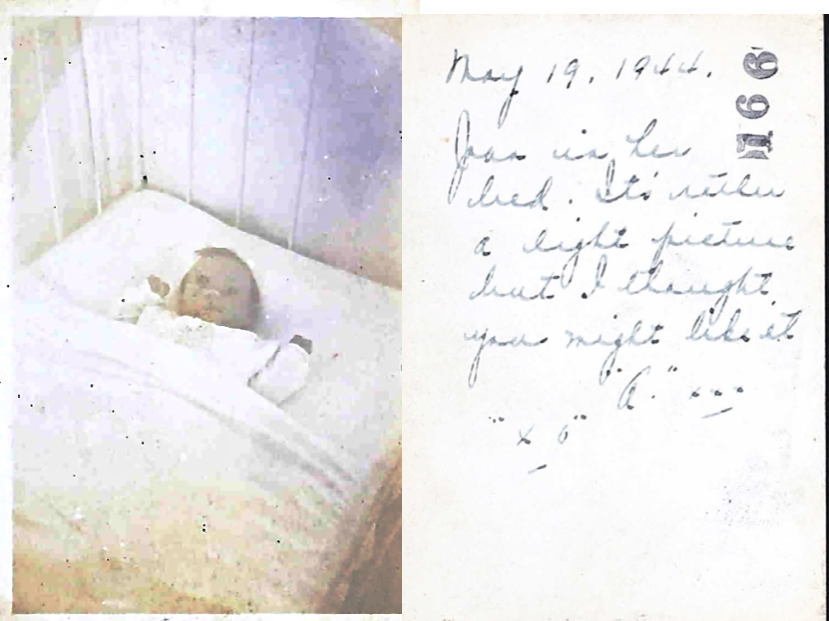 May 19, 1944.
Joan in her
bed. It's rather
a light picture
but I thought
you might like it
"A." xxx
"x o"
166